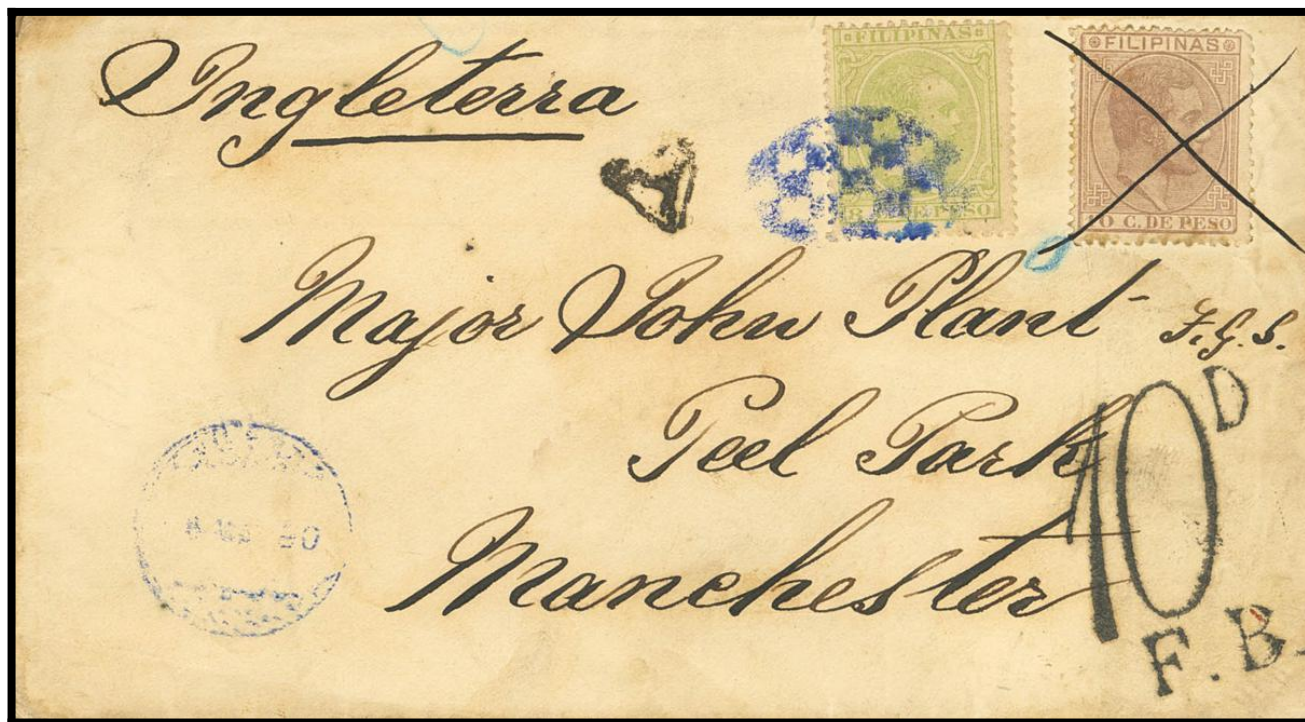 Ingleterra
FILIPINAS
8 C. DE PESO
FILIPINAS
10 C. DE PESO
Major John Plant F.G.S.
Peel Park
Manchester
10 D
F.B.